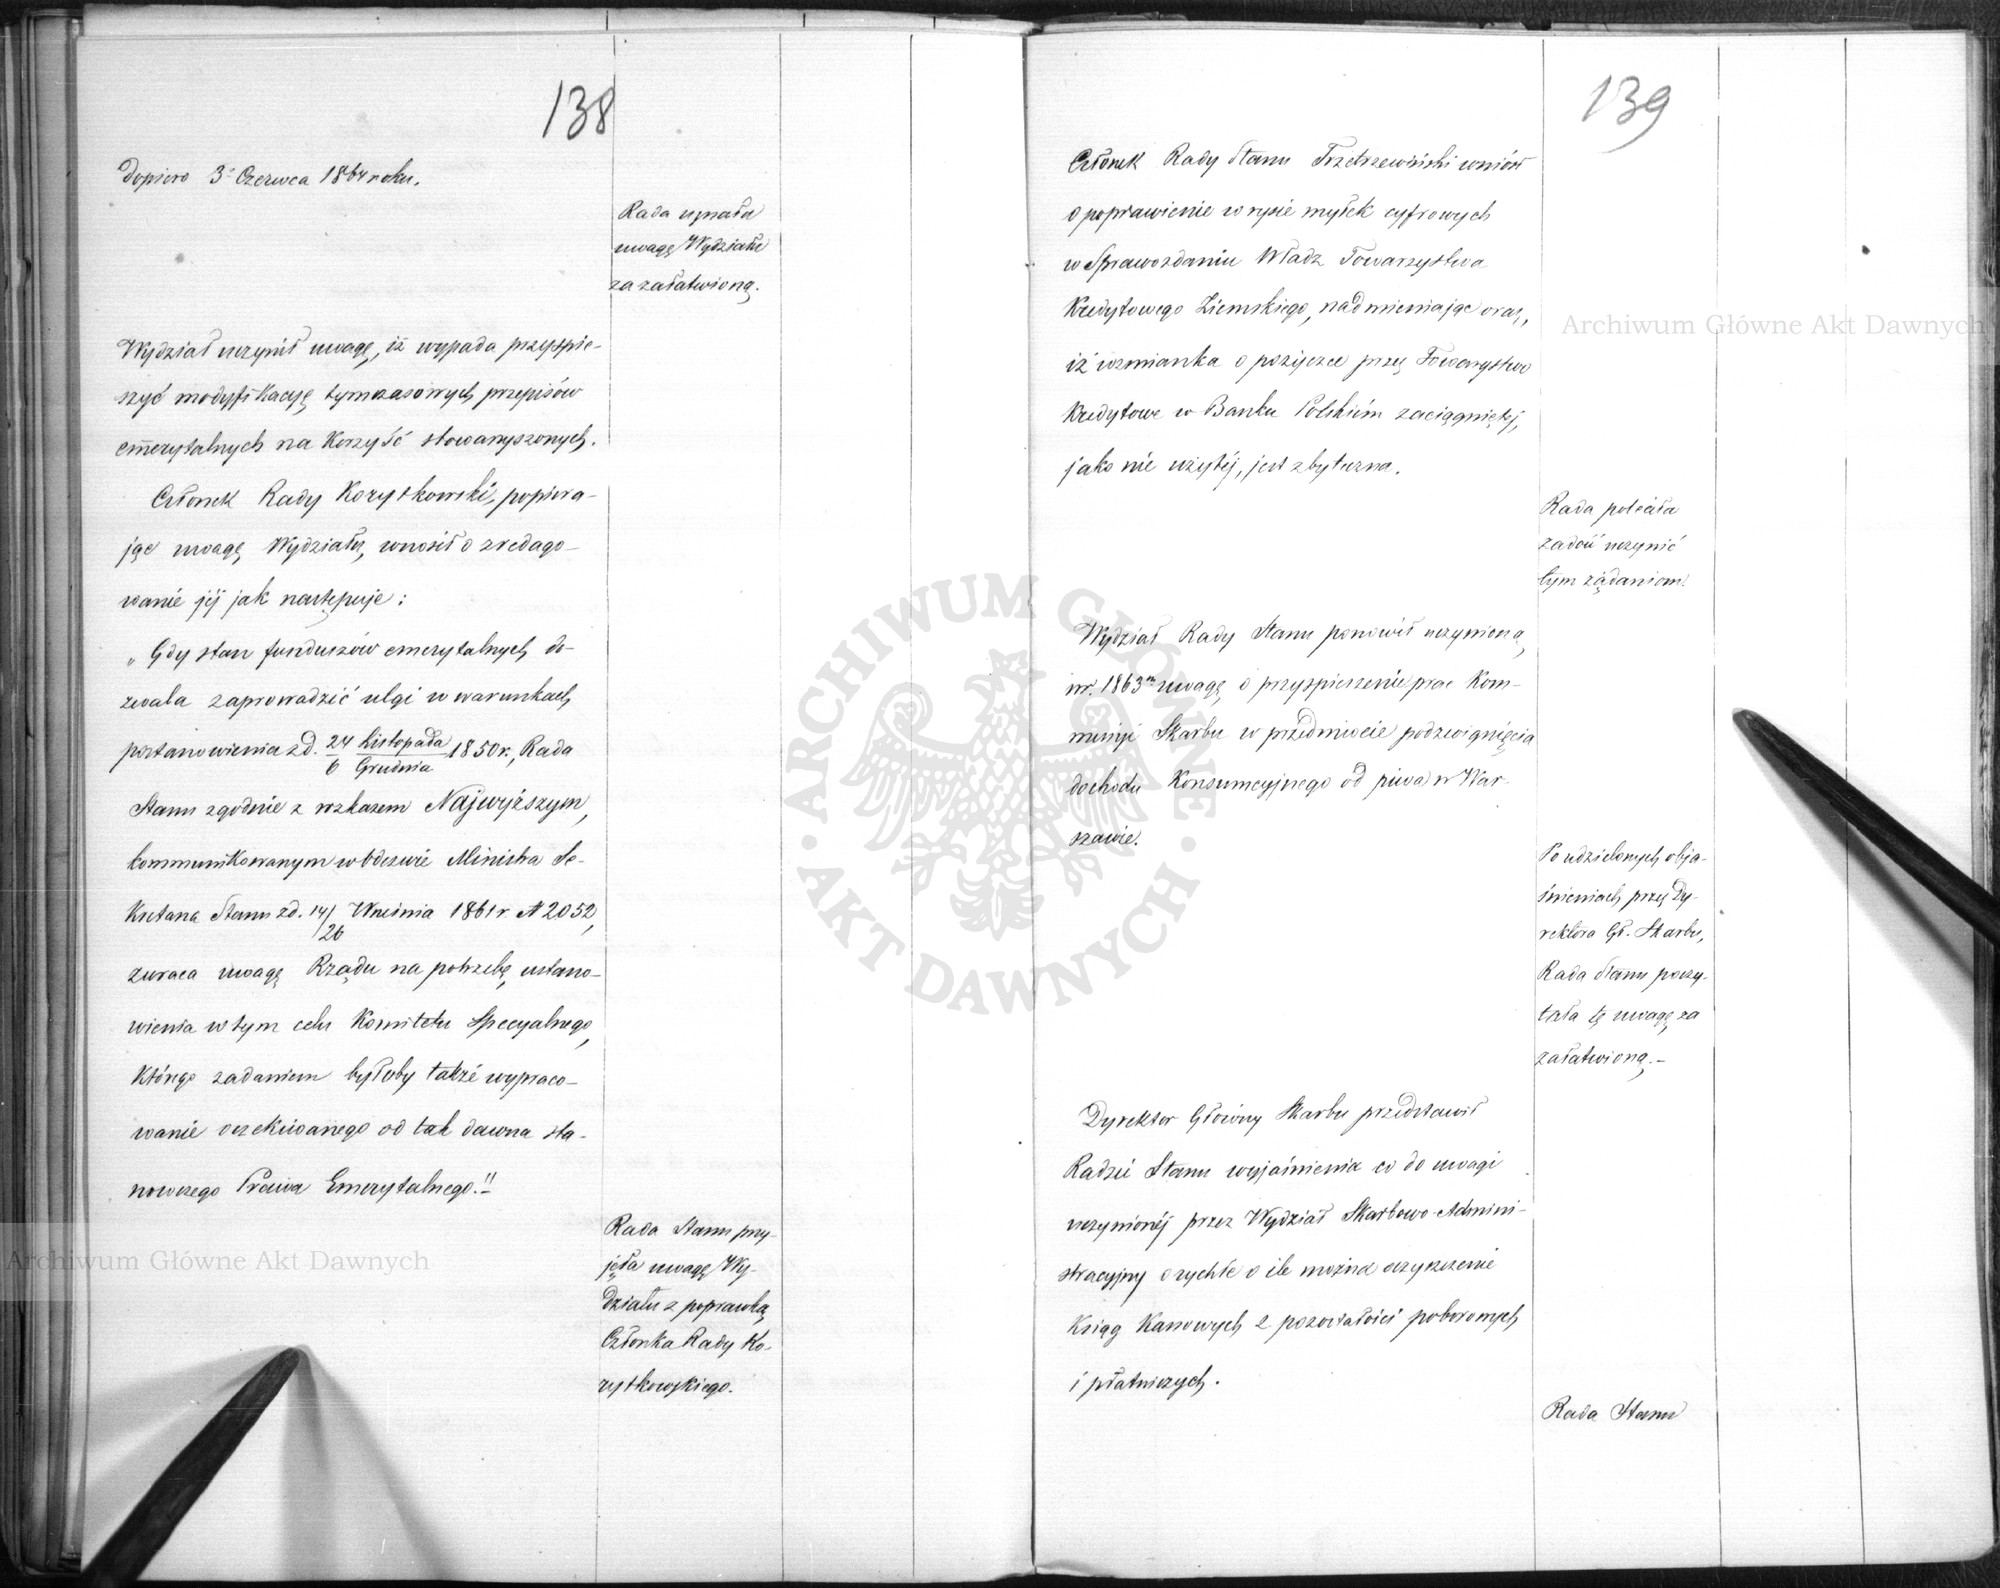 138
Dopiero 3º Czerwca 1864 roku.
Rada uznała
uwagę Wydziału
za załatwioną.
Wydział uczynił uwagę, iż wypada przyspie-
szyć modyfikacyę tymczasowych przepisów
emerytalnych na korzyść stowarzyszonych.
Członek Rady Korytkowski, popiera-
jąc uwagę Wydziału, wnosił o zredago-
wanie jéj jak następuje:
„Gdy stan funduszów emerytalnych do-
zwala zaprowadzić ulgi w warunkach
postanowienia z d. 24 Listopada / 6 Grudnia 1850 r., Rada
Stanu zgodnie z rozkazem Najwyższym,
kommunikowanym w odezwie Ministra Se-
kretarza Stanu z d. 14/26 Września 1861 r. N 2052,
zwraca uwagę Rządu na potrzebę ustano-
wienia w tym celu Komitetu Specyalnego,
którego zadaniem byłoby także wypraco-
wanie oczekiwanego od tak dawna sta-
nowczego Prawa Emerytalnego."
Rada Stanu przy-
jęła uwagę Wy-
działu z poprawką
Członka Rady Ko-
rytkowskiego.
139
Członek Rady Stanu Trzetrzewiński wniósł
o poprawienie w rysie myłek cyfrowych
w Sprawozdaniu Władz Towarzystwa
Kredytowego Ziemskiego, nadmieniając oraz,
iż wzmianka o pożyczce przez Towarzystwo
Kredytowe w Banku Polskim zaciągniętéj,
jako nie użytéj, jest zbyteczna.
Rada poleciła
zadość uczynić
tym żądaniom.
Wydział Rady Stanu ponowił uczynioną
w r. 1863m uwagę o przyspieszenie prac Kom-
missyi Skarbu w przedmiocie podźwignięcia
dochodu Konsumcyjnego od piwa w War-
szawie.
Po udzielonych obja-
śnieniach przez Dy-
rektora Gł. Skarbu,
Rada Stanu poczy-
tała tę uwagę za
załatwioną.-
Dyrektor Główny Skarbu przedstawił
Radzie Stanu wyjaśnienia co do uwagi
uczynionéj przez Wydział Skarbowo-Admini-
stracyjny o rychłe o ile można oczyszczenie
Ksiąg Kassowych z pozostałości poborowych
i płatniczych.
Rada Stanu
Archiwum Główne Akt Dawnych
Archiwum Główne Akt Dawnych
ARCHIWUM GŁÓWNE · AKT DAWNYCH ·